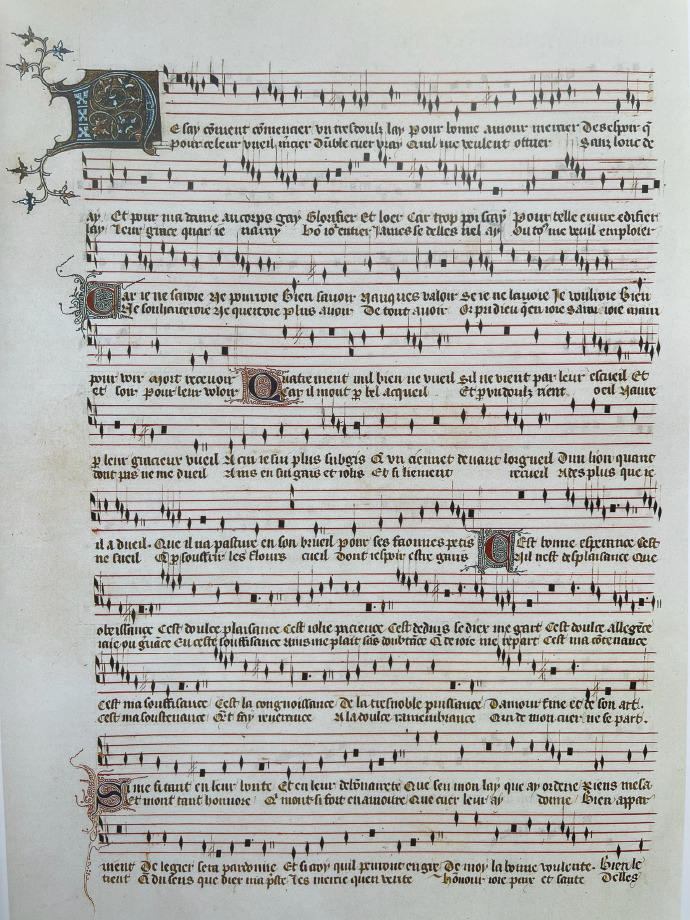 E say coment comencier vn tresdoulz lay pour bonne amour mercier Desespoir q
pour celeur vueil mcier Duble cuer vray Quil me veulent ottrier Sanz louc de
ay. Et pour ma dame au corps gay Glorifier Et loer Car trop poi scay pour telle euure edifier
lay Leur grace quar ie naray Jo ientier James se delles nel ay Ou to me veuil emploier
Car ie ne sauoie Ne pourroie Bien sauoir Nauques valoir Se ie ne lauoie Je voulroie Bien
Ne souhaiteroie Ne querroie plus auoir De tout auoir Or pri dieu qen ioie sanz ioie
pour voir Mort receuoir Quatrement mil bien ne vueil Sil ne vient par leur escueil Et
et soir pour leur voloir Car il mont p bel acqueil Et p vn doulz rient oeil Naure
p leur gracieux vueil A eux ie sui plus subgis Q vn ciennet deuant lorgueil Dun lion quant
dont pas ne me dueil Ains en sui gais et iolis Et si liement recueil A des plus que ie
il a dueil. Que il na pasture en son brueil pour ses faonnes petis Cest bonne esperance Cest
ne sueil Q p souffrir les flours cueil Dont iespoir estre garis Sil nest desplaisance Que
obeissance Cest doulce plaisance Cest iolie pacience Cest deduis se diex me gart Cest doulce allegece
iaie ou grace En ceste souffisance Ains me plait sas doubtace Q de ioie me repart Cest ma cotenance
Cest ma souffisance Cest la congnoissance De la tresnoble puissance Damour fine et de son art.
Cest ma soustenance Et fay reuerence A la doulce ramembrance Qui de mon cuer ne se part.
Si me si tant en leur bonte Et en leur debonairete Que seu mon lay que ay ordene Riens mesa
Et mont tant honnore Q mont si fort enamoure Que cuer leur ay donne Bien appar
ment De legier sera pardonne Et si croy quil prennont en gre De moy la bonne voulente. Bien le
tient A du sens que dier ma pste Les mercie quen verite Honour ioie paix et sante Delles